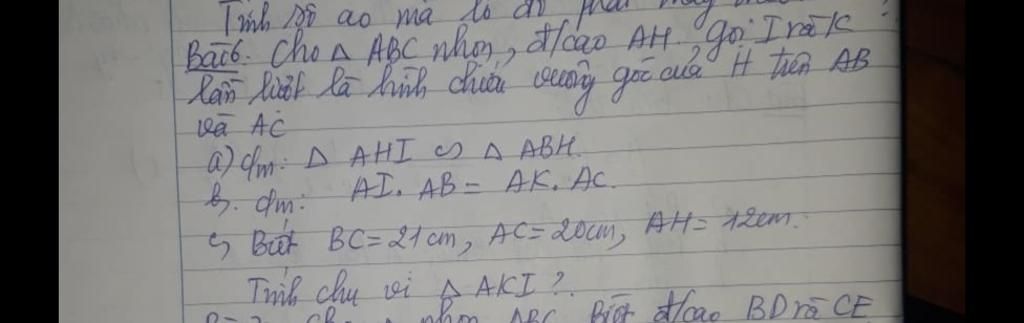 Tính số áo mà tổ đó phải may
Bài 6. Cho Δ ABC nhọn, đ/cao AH, gọi I và K
lần lượt là hình chiếu vuông góc của H trên AB
và AC
a) cm: Δ AHI ∽ Δ ABH.
b. cm: AI. AB = AK. AC.
c, Biết BC = 21 cm, AC = 20cm, AH = 12cm.
Tính chu vi Δ AKI ?.
Cho Δ nhọn ABC Biết đ/cao BD và CE